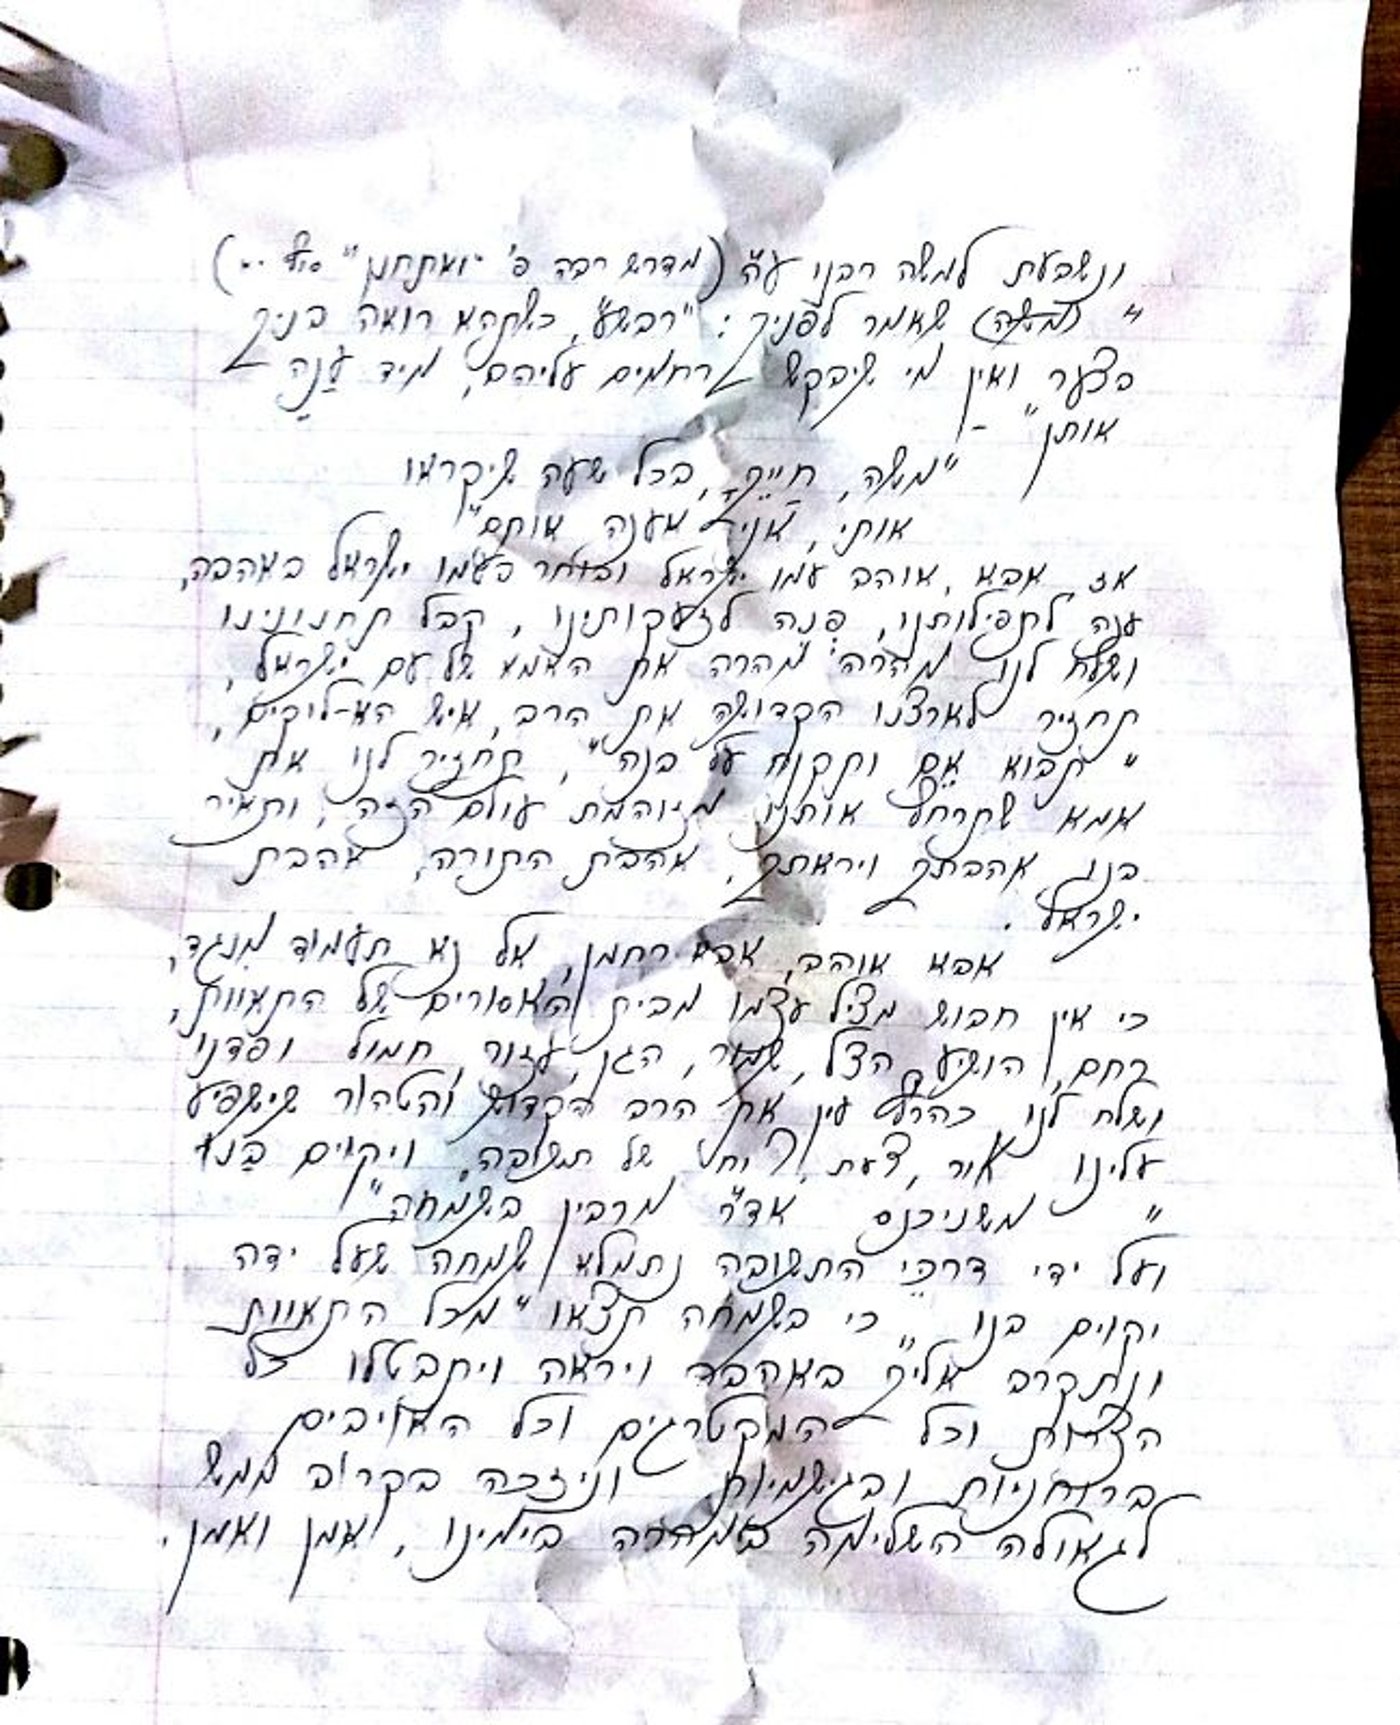 ונשבעת למשה רבנו ע"ה (מדרש רבה פ' "ואתחנן" סוף י-)
" (משה) שאמר לפניך: "רבש"ע, כשתהא רואה בניך
בצער ואין מי שיבקש רחמים עליהם, מיד עֲנֵה
אותן" -
"משה, חייך, בכל שעה שיקראו
אותי, אני אענה אותם"
אז אבא, אוהב עמו ישראל ובוחר בעמו ישראל באהבה,
ענה לתפילותנו, פנה לזעקותינו, קבל תחנונינו
ושלח לנו מהרה מהרה את האמא של עם ישראל,
תחזיר לארצנו הקדושה את הרב, איש הא-ליקים,
"תבוא אֵם ותקנח על בנה", תחזיר לנו את
אמא שתרחץ אותנו מזוהמת עולם הזה, ותאיר
בנו אהבתך ויראתך, אהבת התורה, אהבת
ישראל.
אבא אוהב, אבא רחמן, אל נא תעמוד מנגד,
כי אין חבוש מציל עצמו מבית האסורים של התאוות,
רחם, הושיע, הצל, שמור, הגן, עזור, חמול ופדנו
ושלח לנו כהרף עין את הרב הקדוש והטהור שישפיע
עלינו אור, דעת, רוח של תשובה, ויקוים בָּנוּ
" משניכנס אד"ר מרבין בשמחה"
ועל ידי דרכי התשובה נתמלא שמחה שעל ידה
יקוים בנו "כי בשמחה תצאו" מכל התאוות
ונתקרב אליך באהבה ויראה ויתבטלו כל
הצרות וכל המקטרגים וכל האויבים
ברוחניות ובגשמיות וניזכה בקרוב ממש
לגאולה השלימה במהרה בימינו, אמן ואמן.